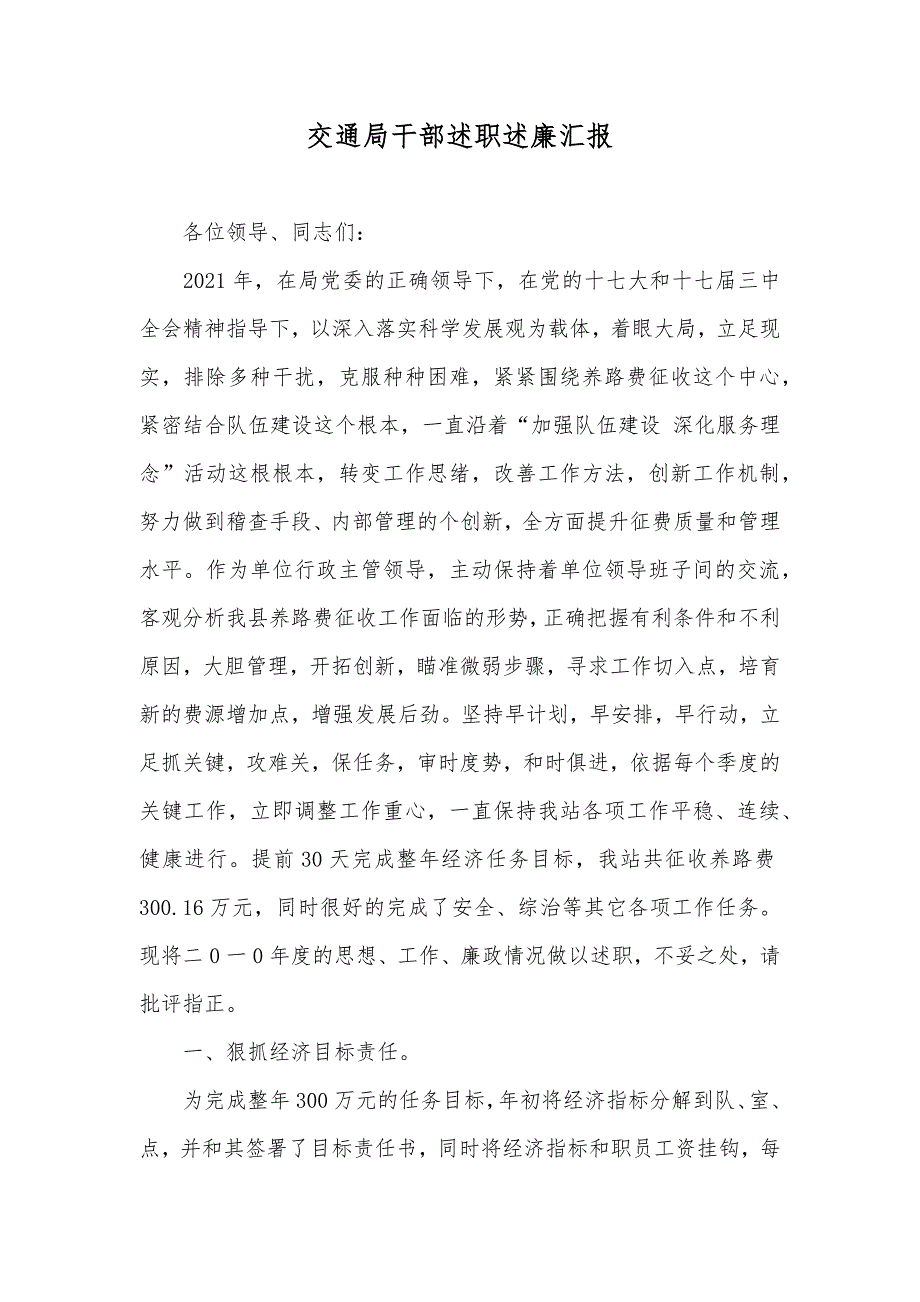 交通局干部述职述廉汇报
各位领导、同志们：
2021年，在局党委的正确领导下，在党的十七大和十七届三中
全会精神指导下，以深入落实科学发展观为载体，着眼大局，立足现
实，排除多种干扰，克服种种困难，紧紧围绕养路费征收这个中心，
紧密结合队伍建设这个根本，一直沿着“加强队伍建设 深化服务理
念”活动这根根本，转变工作思绪，改善工作方法，创新工作机制，
努力做到稽查手段、内部管理的个创新，全方面提升征费质量和管理
水平。作为单位行政主管领导，主动保持着单位领导班子间的交流，
客观分析我县养路费征收工作面临的形势，正确把握有利条件和不利
原因，大胆管理，开拓创新，瞄准微弱步骤，寻求工作切入点，培育
新的费源增加点，增强发展后劲。坚持早计划，早安排，早行动，立
足抓关键，攻难关，保任务，审时度势，和时俱进，依据每个季度的
关键工作，立即调整工作重心，一直保持我站各项工作平稳、连续、
健康进行。提前30天完成整年经济任务目标，我站共征收养路费
300.16万元，同时很好的完成了安全、综治等其它各项工作任务。
现将二0一0年度的思想、工作、廉政情况做以述职，不妥之处，请
批评指正。
一、狠抓经济目标责任。
为完成整年300万元的任务目标，年初将经济指标分解到队、室、
点，并和其签署了目标责任书，同时将经济指标和职员工资挂钩，每